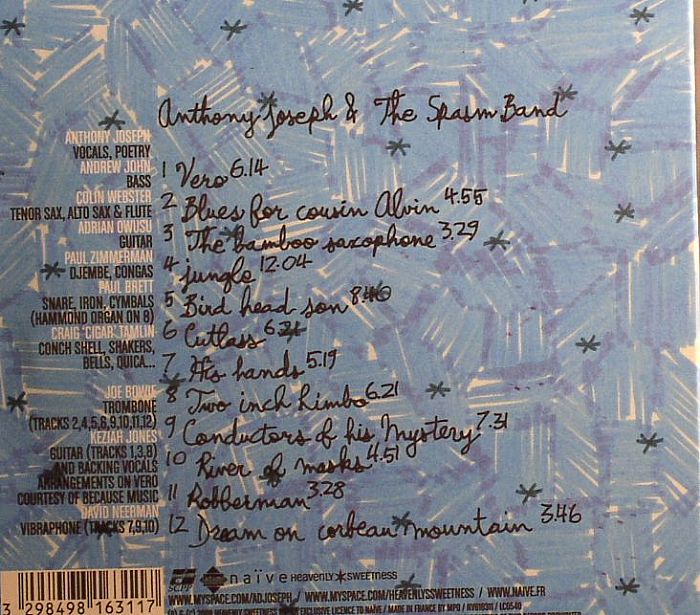 Anthony Joseph & The Spasm Band
ANTHONY JOSEPH
VOCALS, POETRY
ANDREW JOHN
BASS
COLIN WEBSTER
TENOR SAX, ALTO SAX & FLUTE
ADRIAN OWUSU
GUITAR
PAUL ZIMMERMAN
DJEMBE, CONGAS
PAUL BRETT
SNARE, IRON, CYMBALS
(HAMMOND ORGAN ON 8)
CRAIG 'CIGAR' TAMLIN
CONCH SHELL, SHAKERS,
BELLS, QUICA...
JOE BOWIE
TROMBONE
(TRACKS 2,4,5,6,9,10,11,12)
KEZIAH JONES
GUITAR (TRACKS 1,3,8)
AND BACKING VOCALS
ARRANGEMENTS ON VERO
COURTESY OF BECAUSE MUSIC
DAVID NEERMAN
VIBRAPHONE (TRACKS 7,9,10)
1 Vero 6.14
2 Blues for cousin Alvin 4.55
3 The bamboo saxophone 3.29
4 jungle 12.04
5 Bird head son 8.40
6 Cutlass 6.21
7 His hands 5.19
8 Two inch limbo 6.21
9 Conductors of his Mystery 7.31
10 River of masks 4.51
11 Robberman 3.28
12 Dream on corbeau mountain 3.46
naïve HEAVENLY SWEETNESS
WWW.MYSPACE.COM/ADJOSEPH / WWW.MYSPACE.COM/HEAVENLYSSWEETNESS / WWW.NAIVE.FR
HEAVENLY SWEETNESS EXCLUSIVE LICENCE TO NAÏVE / MADE IN FRANCE BY MPO
3 298498 163117